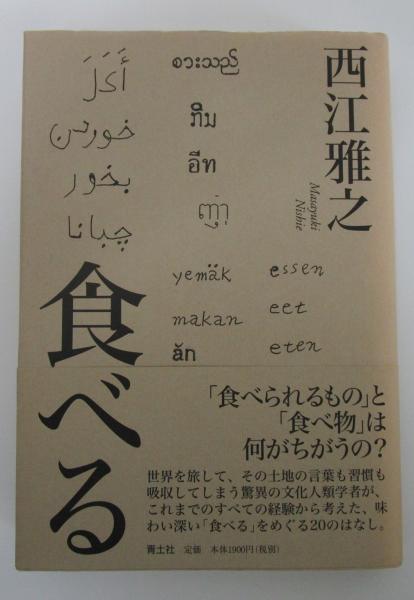 西江雅之
Masayuki
Nishie
أَكَلَ
خوردن
بخور
چبانا
စားသည်
ກິນ
ញ៉ាំ
yemäk
makan
ăn
essen
eet
eten
食べる
「食べられるもの」と
「食べ物」は
何がちがうの？
世界を旅して、その土地の言葉も習慣も
吸収してしまう驚異の文化人類学者が、
これまでのすべての経験から考えた、味
わい深い「食べる」をめぐる20のはなし。
青土社 定価 本体1900円(税別)